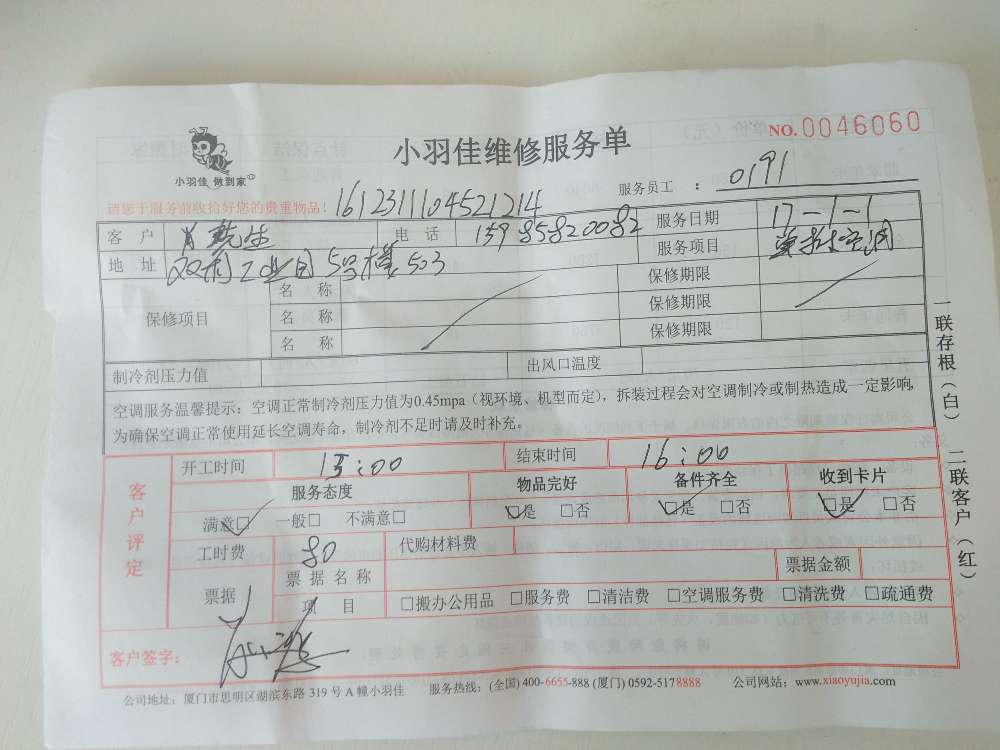 小羽佳维修服务单
NO.0046060
小羽佳 做到家
服务员工 : 0191
请您于服务前收拾好您的贵重物品! 1612311104521214
客 户 肖 先生 电 话 15985820082 服务日期 17-1-1
地 址 工业园5号楼503 服务项目 空调
保修项目 名 称 保修期限
名 称 保修期限
名 称 保修期限
制冷剂压力值 出风口温度
空调服务温馨提示：空调正常制冷剂压力值为0.45mpa（视环境、机型而定），拆装过程会对空调制冷或制热造成一定影响，
为确保空调正常使用延长空调寿命，制冷剂不足时请及时补充。
客户评定
开工时间 15:00 结束时间 16:00
服务态度 物品完好 备件齐全 收到卡片
满意□ 一般□ 不满意□ □是 □否 □是 □否 □是 □否
工时费 80 代购材料费
票据 票据名称 票据金额
项 目 □搬办公用品 □服务费 □清洁费 □空调服务费 □清洗费 □疏通费
客户签字：
公司地址：厦门市思明区湖滨东路 319 号 A 幢小羽佳 服务热线：(全国) 400-6655-888 (厦门) 0592-5178888 公司网站：www.xiaoyujia.com
一联存根（白） 二联客户（红）